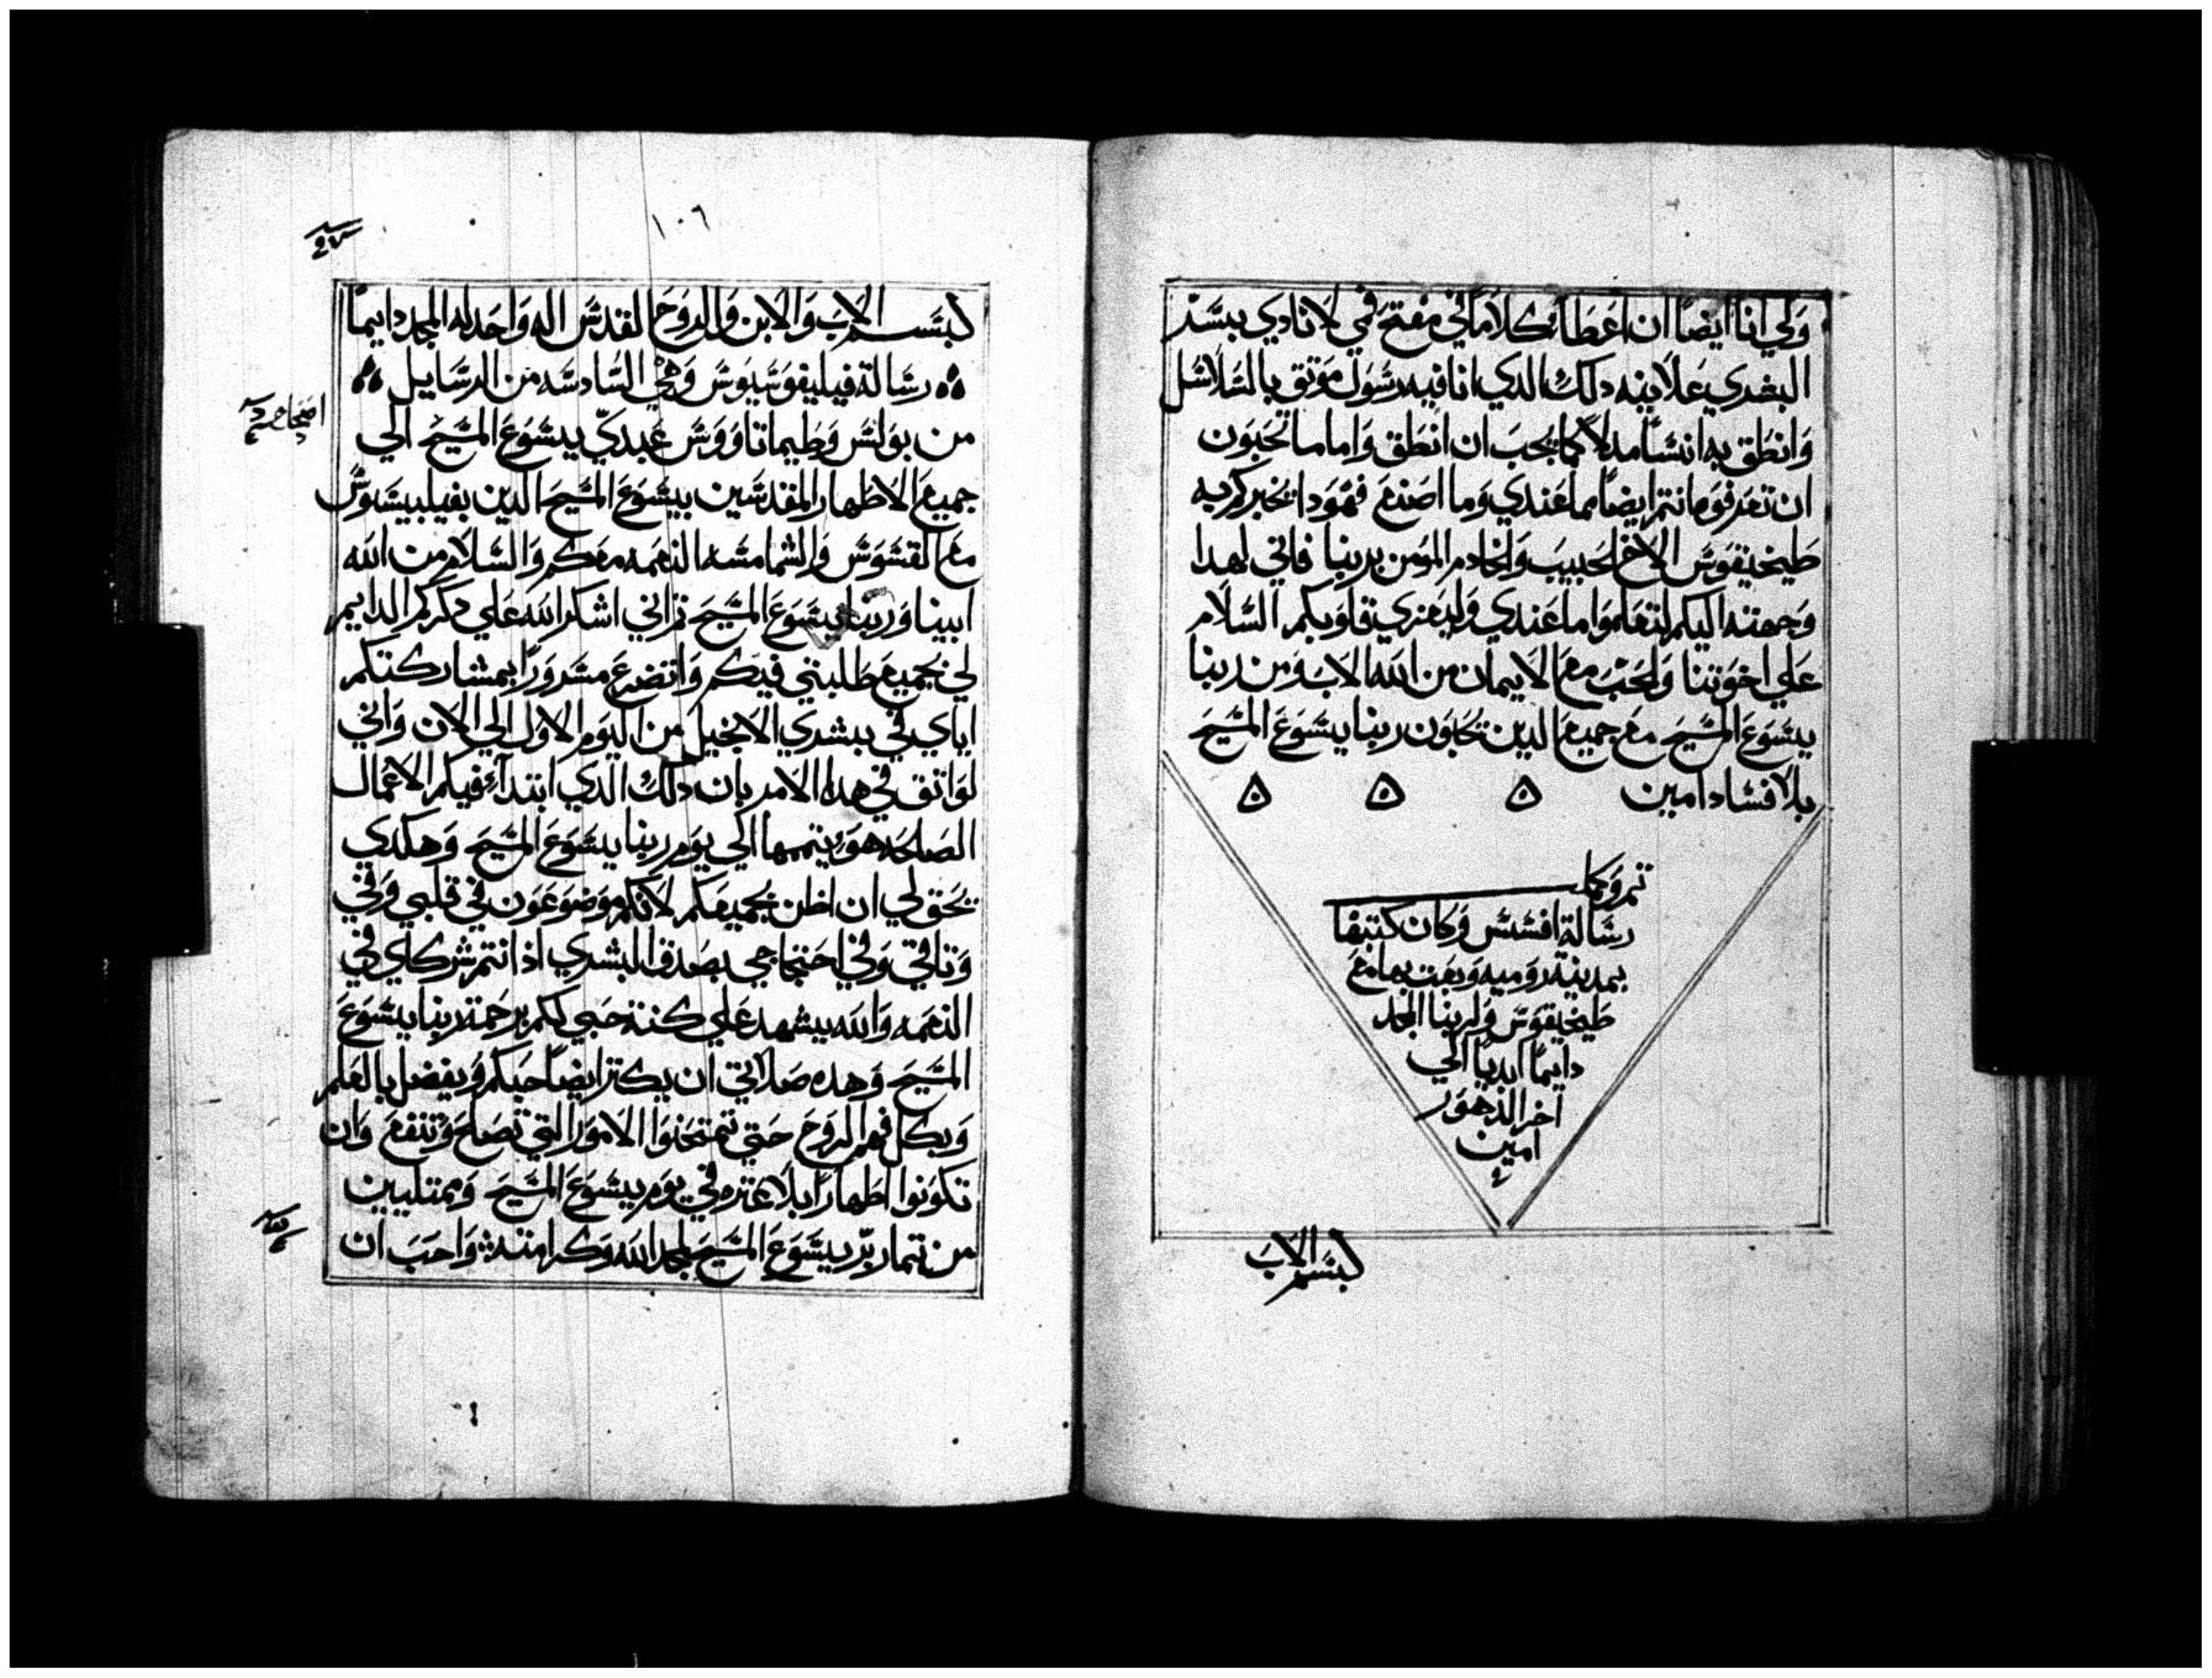 ولي انا ايضا ان اعطا كلاما في مفتح في لانادي بسر
البشري علانيه دلك الدي انا فيه رسول موتق بالسلاسل
وانطق به انسا مدلا كما يجب ان انطق واما ما تحبون
ان تعرفوه انتم ايضا مما عندي وما اصنع فهودا يخبركم به
طيخيقوس الاخ الحبيب والخادم المومن بربنا فاني لهدا
وجهته اليكم لتعلموا ما عندي وليعزي قلوبكم السلام
علي اخوتنا والحب مع الايمان من الله الاب ومن ربنا
يسوع المسيح مع جميع الدين يحبون ربنا يسوع المسيح
بلا فساد امين
تم وكمل
رسالة افسس وكان كتبها
بمدينة روميه وبعت بها مع
طيخيقوس ولربنا المجد
دايما ابديا الي
اخر الدهور
امين
بسم الاب
١٠٦
بسم الاب والابن والروح القدس اله واحد له المجد دايما
رسالة فيليفوسيوس وهي السادسه من الرسايل
من بولس وطيماتاووس عبدي يسوع المسيح الي
جميع الاطهار المقدسين بيسوع المسيح الدين بفيلبيسيوس
مع القسوس والشمامسه النعمه معكم والسلام من الله
ابينا وربنا يسوع المسيح تم اني اشكر الله علي دكركم الدايم
لي بجميع طلبتي فيكم واتضرع مسرورا بمشاركتكم
اياي في بشري الانجيل من اليوم الاول الي الان واني
لواتق في هدا الامر بان دلك الدي ابتداء فيكم الاعمال
الصالحه هو يتمها الي يوم ربنا يسوع المسيح وهكدي
يحق لي ان اظن بجميعكم لانكم موضوعون في قلبي وفي
وتاقي وفي احتجاجي بصدق البشري اد انتم شركاي في
النعمه والله يشهد علي كنة حبي لكم برحمة ربنا يسوع
المسيح وهده صلاتي ان يكتر ايضا حبكم ويفضل بالعلم
وبكل فهم الروح حتي تمتحنوا الامور التي تصلح وتنفع وان
تكونوا اطهارا بلا عتره في يوم يسوع المسيح وممتليين
من تمار بر يسوع المسيح لمجد الله وكرامته واحب ان